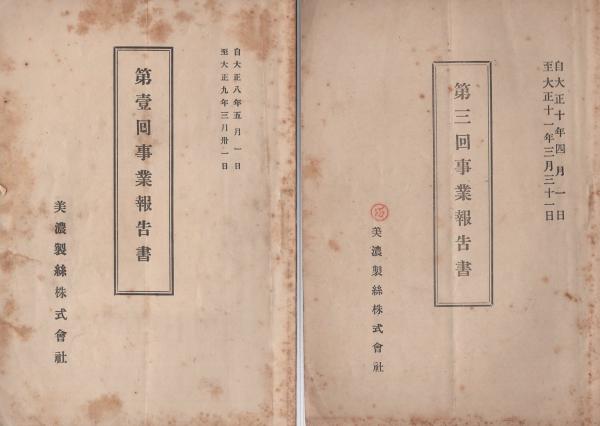 自大正八年五月一日
至大正九年三月卅一日
第壹回事業報告書
美濃製絲株式會社
自大正十年四月一日
至大正十一年三月三十一日
第三回事業報告書
美濃製絲株式會社